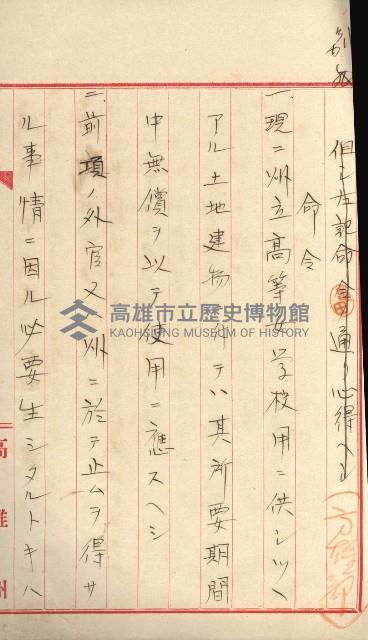 但シ左記命令通リ心得ヘシ
命令
一、現ニ州立高等女学校用ニ供シツヽ
アル土地建物ニ付テハ其所要期間
中無償ヲ以テ使用ニ應スヘシ
二、前項ノ外官又ハ州ニ於テ止ムヲ得サ
ル事情ニ因ル必要生シタルトキハ
高雄州
高雄市立歷史博物館
KAOHSIUNG MUSEUM OF HISTORY